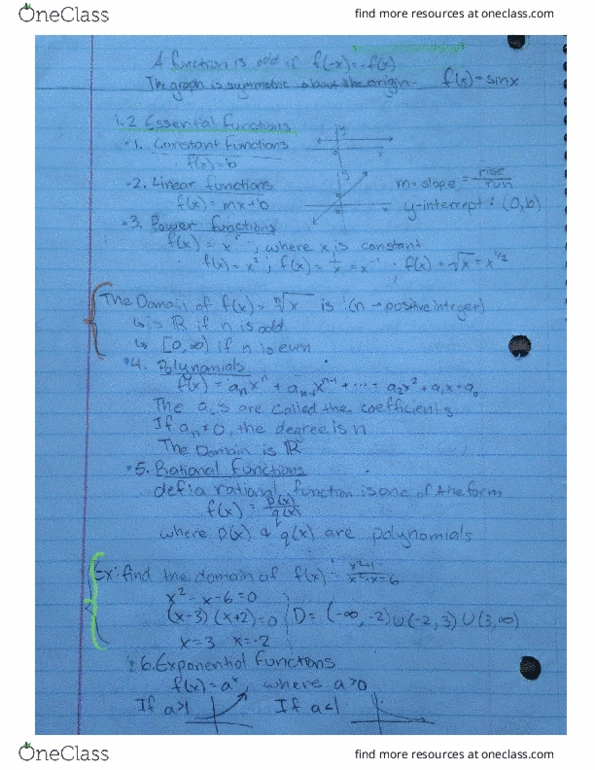 OneClass
find more resources at oneclass.com
A function is odd if f(-x)=-f(x)
The graph is symmetric about the origin- f(x)=sinx
1.2 Essential Functions
1. Constant Functions
f(x)=b
y
x
2. Linear functions
m=slope = rise/run
f(x)=mx+b
y-intercept: (0,b)
3. Power functions
f(x) = xʳ, where x is constant
f(x)=x²; f(x)=1/x=x⁻¹; f(x)=√x=x^1/2
The Domain of f(x)=ⁿ√x is: (n → positive integer)
↳ is ℝ if n is odd
↳ [0,∞) if n is even
4. Polynomials
f(x) = aₙxⁿ + aₙ₋₁xⁿ⁻¹ + ... + a₂x² + a₁x + a₀
The a's are called the coefficients
If aₙ≠0, the degree is n
The Domain is ℝ
5. Rational Functions
def: a rational function is one of the form
f(x) = p(x)/q(x)
where p(x) & q(x) are polynomials
Ex: find the domain of f(x)= x²+1/x²-x-6
x²-x-6=0
(x-3)(x+2)=0 D= (-∞,-2)∪(-2,3)∪(3,∞)
x=3 x=-2
6. Exponential Functions
f(x)=aˣ, where a>0
If a>1 If a<1
OneClass
find more resources at oneclass.com